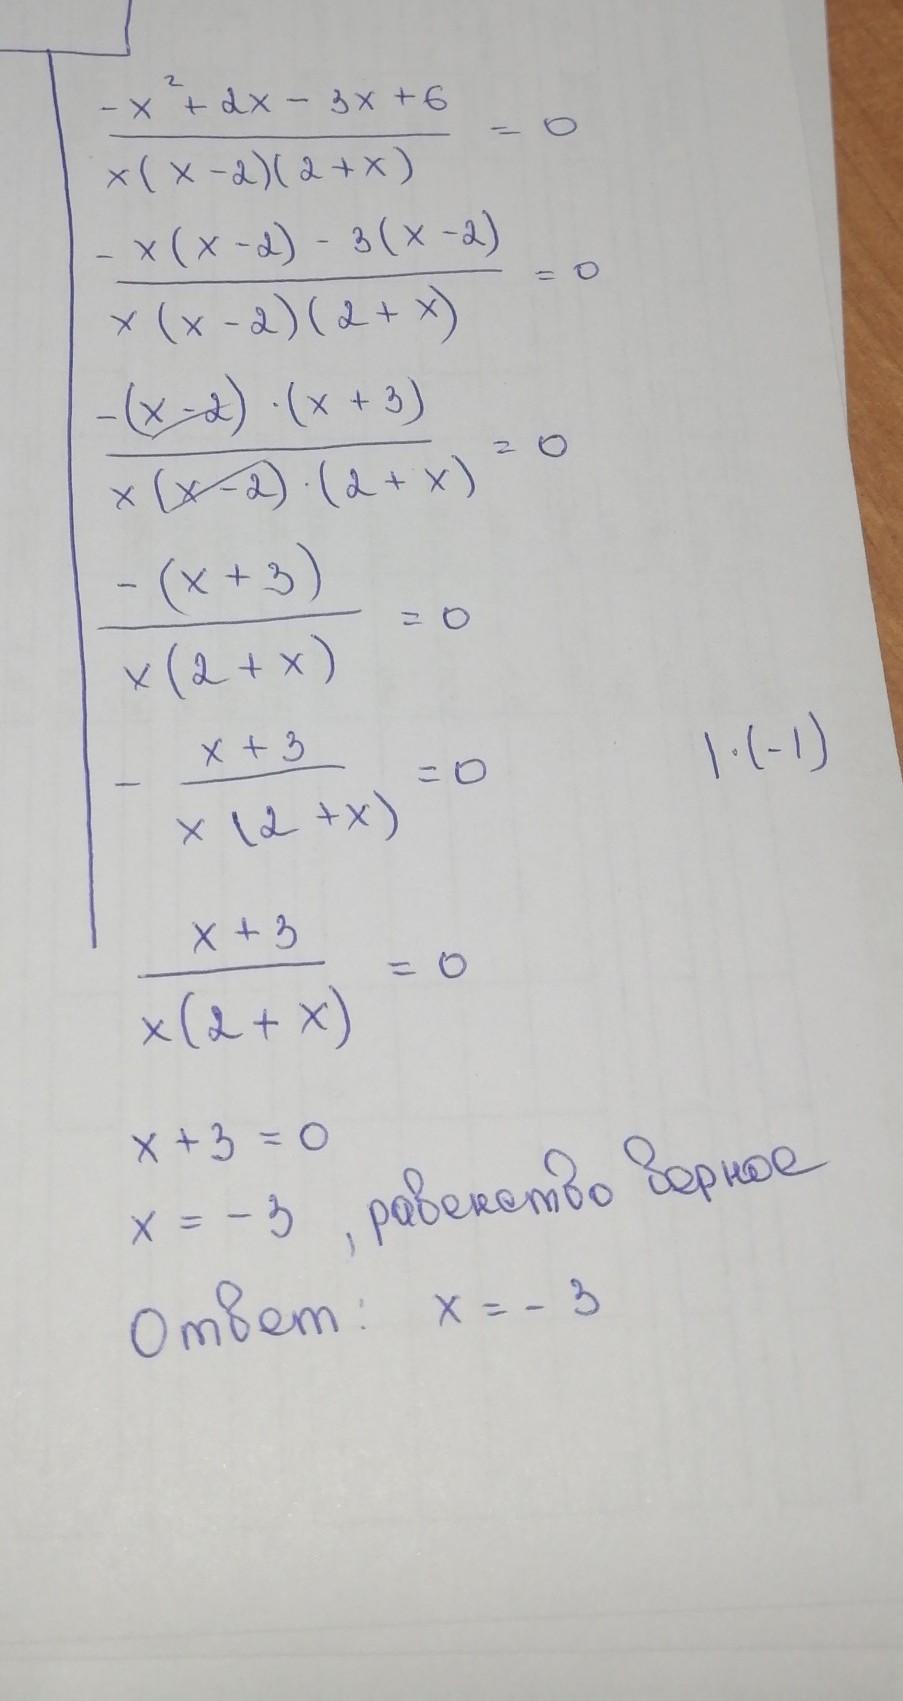 -x² + 2x - 3x + 6
x(x-2)(2+x) = 0
-x(x-2) - 3(x-2)
x(x-2)(2+x) = 0
-(x-2)·(x+3)
x(x-2)·(2+x) = 0
-(x+3)
x(2+x) = 0
- x+3
x(2+x) = 0 |·(-1)
x+3
x(2+x) = 0
x+3=0
x = -3, равенство верное
Ответ: x = -3